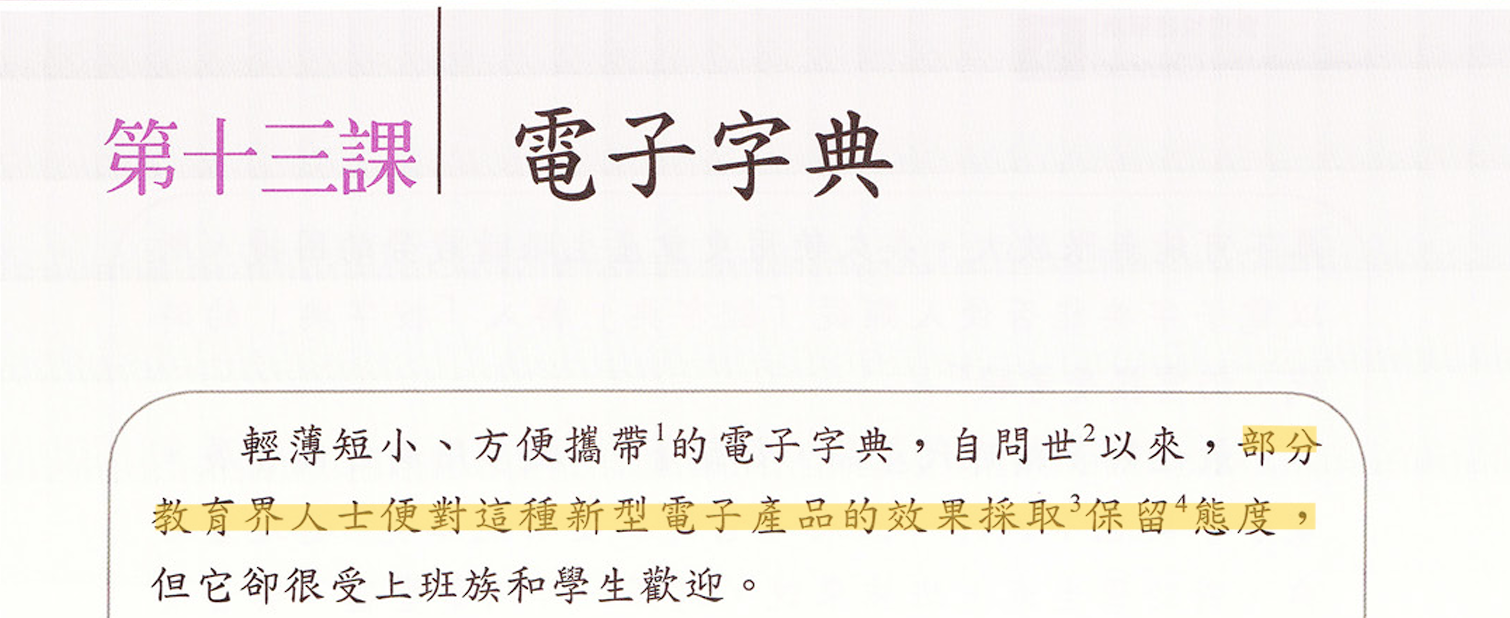 第十三課 電子字典
輕薄短小、方便攜帶1的電子字典，自問世2以來，部分
教育界人士便對這種新型電子產品的效果採取3保留4態度，
但它卻很受上班族和學生歡迎。